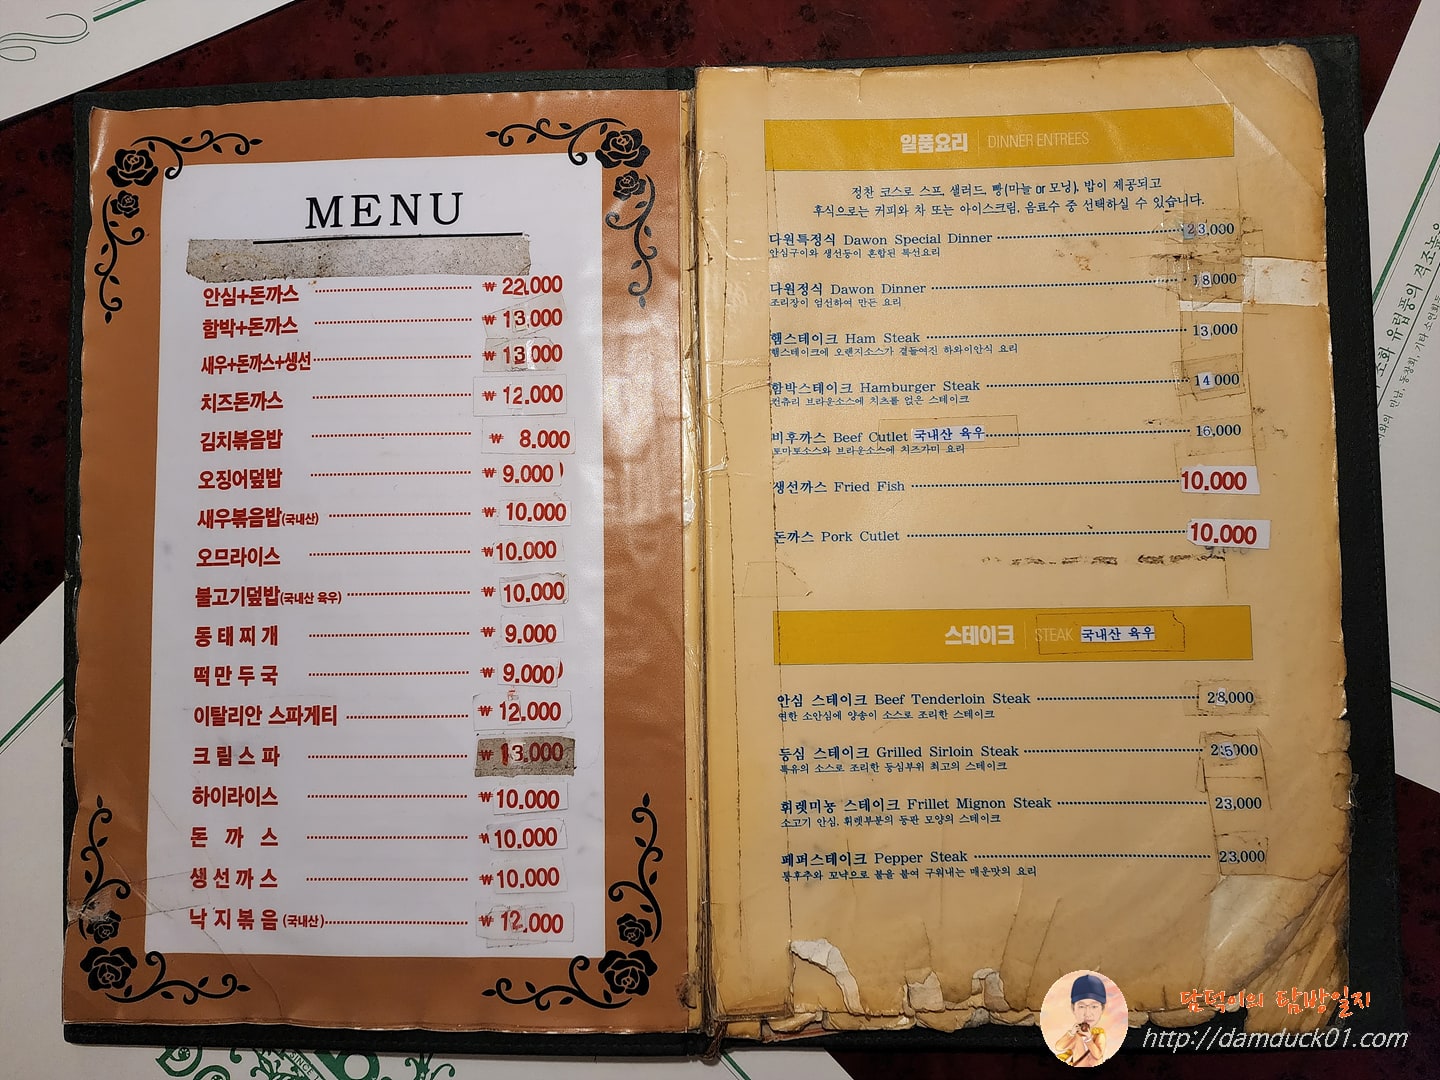 MENU
안심+돈까스 ₩ 22.000
함박+돈까스 ₩ 13.000
새우+돈까스+생선 ₩ 13.000
치즈돈까스 ₩ 12.000
김치볶음밥 ₩ 8.000
오징어덮밥 ₩ 9.000
새우볶음밥(국내산) ₩ 10.000
오므라이스 ₩ 10.000
불고기덮밥(국내산 육우) ₩ 10.000
동태찌개 ₩ 9.000
떡만두국 ₩ 9.000
이탈리안 스파게티 ₩ 12.000
크림스파 ₩ 13.000
하이라이스 ₩ 10.000
돈까스 ₩ 10.000
생선까스 ₩ 10.000
낙지볶음 (국내산) ₩ 12.000
일품요리 | DINNER ENTREES
정찬 코스로 스프, 샐러드, 빵(마늘 or 모닝), 밥이 제공되고
후식으로는 커피와 차 또는 아이스크림, 음료수 중 선택하실 수 있습니다.
다원특정식 Dawon Special Dinner 23,000
안심구이와 생선등이 혼합된 특선요리
다원정식 Dawon Dinner 18,000
조리장이 엄선하여 만든 요리
햄스테이크 Ham Steak 13,000
햄스테이크에 오랜지소스가 곁들여진 하와이안식 요리
함박스테이크 Hamburger Steak 14,000
컨츄리 브라운소스에 치즈를 얹은 스테이크
비후까스 Beef Cutlet 국내산 육우 16,000
토마토소스와 브라운소스에 치즈가미 요리
생선까스 Fried Fish 10.000
돈까스 Pork Cutlet 10.000
스테이크 | STEAK 국내산 육우
안심 스테이크 Beef Tenderloin Steak 28,000
연한 소안심에 양송이 소스로 조리한 스테이크
등심 스테이크 Grilled Sirloin Steak 25,000
특유의 소스로 조리한 등심부위 최고의 스테이크
휘렛미뇽 스테이크 Frillet Mignon Steak 23,000
소고기 안심, 휘렛부분의 둥판 모양의 스테이크
페퍼스테이크 Pepper Steak 23,000
통후추와 꼬냑으로 불을 붙여 구워내는 매운맛의 요리
유럽풍의 격조높은
담덕이의 탐방일지
http://damduck01.com